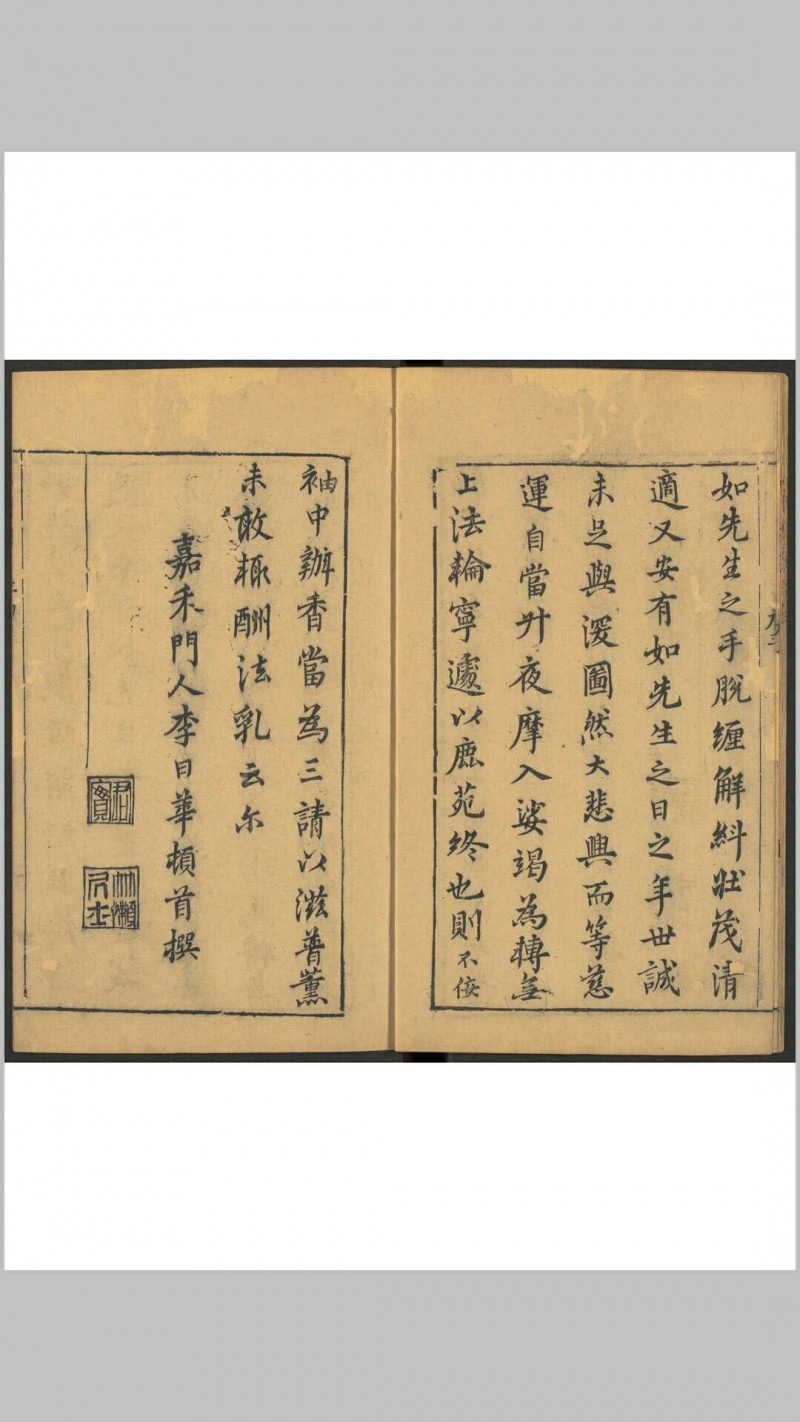 如先生之手脫纏解糾壯茂清
適又安有如先生之日之年世誠
未足與溲圖然大悲興而等慈
運自當升夜摩入娑竭為轉無
上法輪寧遽以鹿苑終也則不佞
袖中瓣香當為三請以滋普薰
未敢輒酬法乳云尔
嘉禾門人李日華頓首撰
君實
竹懶居士